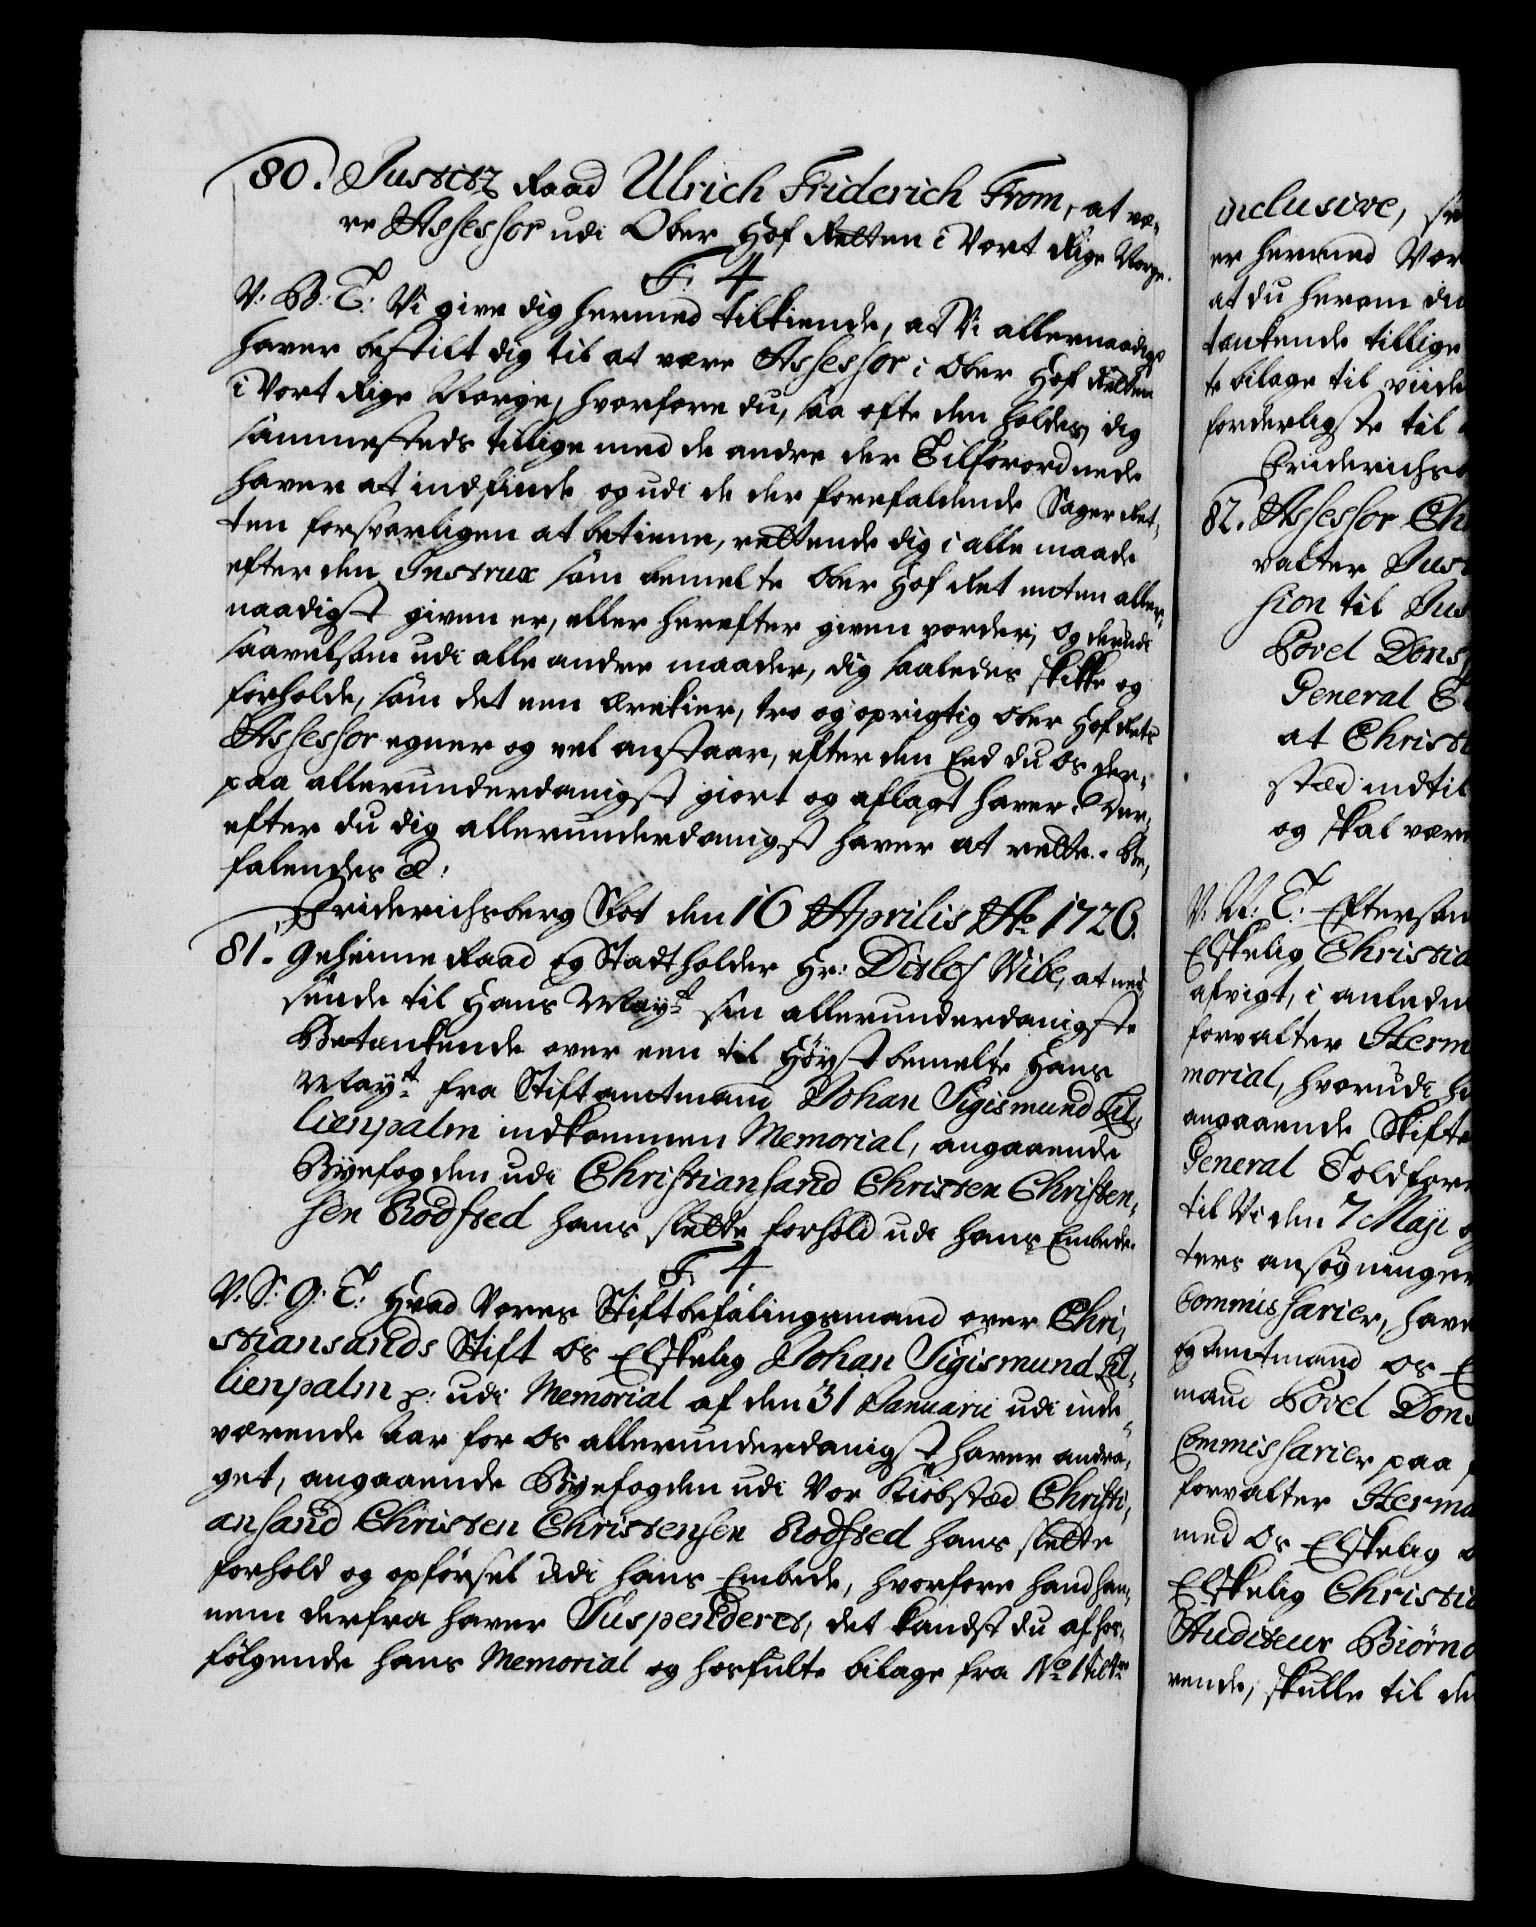 80. Justitz Raad Ulrich Friderich From, at væ-
re Assessor udi Ober Hof Retten i Vort Rige Norge.
F. 4
V: B: T: Vi give dig hermed tilkiende, at Vi allernaadigst
haver bestilt dig til at være Assessor i Ober Hof Retten
i Vort Rige Norge, hvorfore du, saa ofte den holdes, dig
sammesteds tillige med de andre der Tilforordnede
haver at indfinde og udi de der forefaldende Sager Ret-
ten forsvarligen at betiene, rettende dig i alle maade
efter den Instrux som bemelte Ober Hof Ret enten aller-
naadigst given er, eller herefter given vorder, og derudi
saavelsom udi alle andre maader, dig saaledes skikke og
forholde, som det een ærekier, tro og oprigtig Ober Hof Rets
Assessor egner og vel anstaar, efter den Eed du os der-
paa allerunderdanigst giort og aflagt haver. Der-
efter du dig allerunderdanigst haver at rette. Be-
falendes &:
Friderichsberg Slot den 16 Aprilis Ao 1726.
81. Geheime Raad og Stadtholder Hr: Ditlef Wibe, at ned
sende til Hans Mayt: sin allerunderdanigste
Betænkende over een til Høystbemelte Hans
Mayt: fra Stiftamtmand Johan Sigismund Lil-
lienpalm indkommen Memorial, angaaende
Byefogden udi Christiansand Christen Christen-
sen Rodsted hans slette forhold udi hans Embede.
F. 4.
V: S: G: T: Hvad Vores Stiftbefalingsmand over Chri-
stiansands Stift os Elskelig Johan Sigismund Lil-
lienpalm p: udi Memorial af den 31 Januarii udi inde-
værende Aar for os allerunderdanigst haver andra-
get, angaaende Byefogden udi Vor Kiøbstæd Christi-
ansand Christen Christensen Rodsted hans slette
forhold og opførsel udi hans Embede, hvorfore hand han-
nem derfra haver Suspenderet, det kandst du af hos-
følgende hans Memorial og hosfulte bilage fra No 1 til
inclusive, 
er hermed Vor
at du herom di
tænkende tillige
te bilage til viide
forderligste til
Friderichs
82. Assessor Ch
valter Jus
sion til Jus
Povel Dons
General T
at Christ
stæd indtil
og skal være
V: V: T: Eftersom
Elskelig Christia
afvigt, i anledn
forvalter Herm
morial, hvorudi h
angaaende Skifte
General Toldforv
til Vi den 7 Maji o
ters ansøgninger
Commissarier, have
og amtmand os E
mand Povel Dons
Commissarier paa
forvalter Herma
med os Elskelig o
Elskelig Christia
Auditeur Biørn
rende, skulle til de